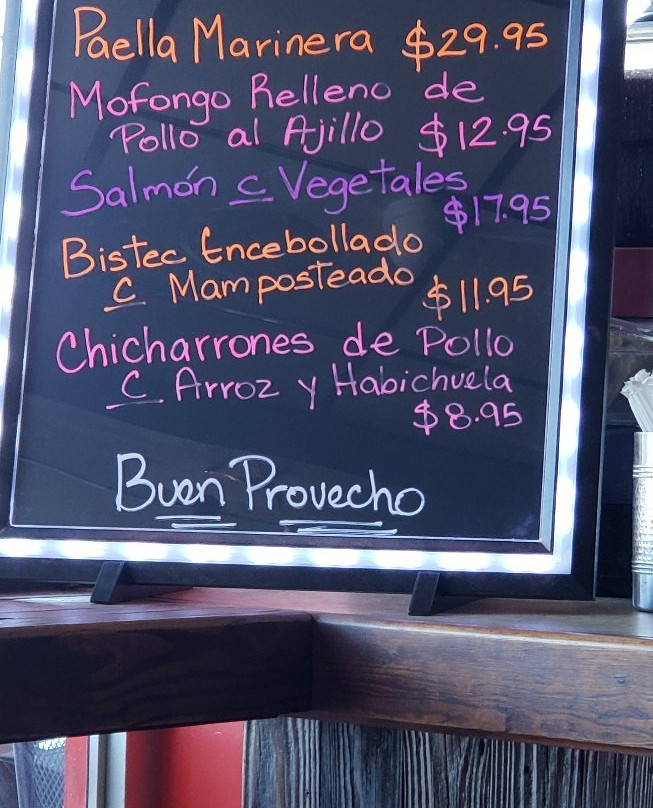 Paella Marinera $29.95
Mofongo Relleno de
Pollo al Ajillo $12.95
Salmón c Vegetales
$17.95
Bistec Encebollado
c Mamposteado $11.95
Chicharrones de Pollo
c Arroz y Habichuela
$8.95
Buen Provecho